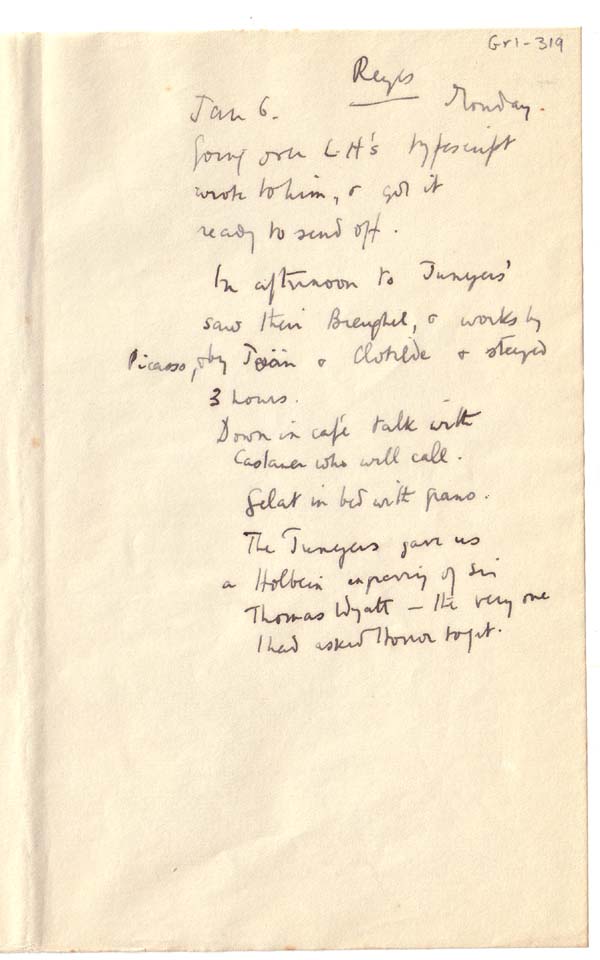 Gr1-319
Reyes
Jan 6. Monday.
Going over LH's typescript
wrote to him, & got it
ready to send off.
In afternoon to Junyers'
saw their Breughel, & works by
Picasso, & by Joän & Clotilde & stayed
3 hours.
Down in café talk with
Castaner who will call.
Gelat in bed with grano.
The Junyers gave us
a Holbein engraving of Sir
Thomas Wyatt – the very one
I had asked Honor to get.